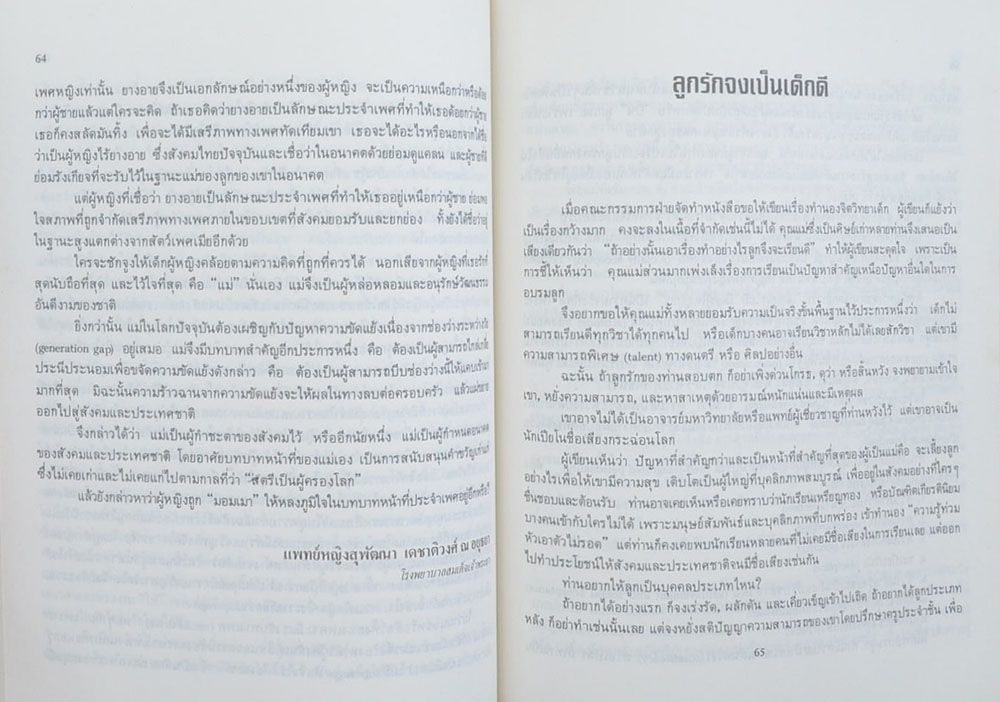 64
เพศหญิงเท่านั้น ยางอายจึงเป็นเอกลักษณ์อย่างหนึ่งของผู้หญิง จะเป็นความเหนือกว่าหรือด้อย
กว่าผู้ชายแล้วแต่ใครจะคิด ถ้าเธอคิดว่ายางอายเป็นลักษณะประจำเพศที่ทำให้เธอด้อยกว่าผู้ชาย
เธอก็คงสลัดมันทิ้ง เพื่อจะได้มีเสรีภาพทางเพศทัดเทียมเขา เธอจะได้อะไรหรือนอกจากได้ชื่อ
ว่าเป็นผู้หญิงไร้ยางอาย ซึ่งสังคมไทยปัจจุบันและเชื่อว่าในอนาคตด้วยย่อมดูแคลน และผู้ชายที่
ย่อมรังเกียจที่จะรับไว้ในฐานะแม่ของลูกของเขาในอนาคต
แต่ผู้หญิงที่เชื่อว่า ยางอายเป็นลักษณะประจำเพศที่ทำให้เธออยู่เหนือกว่าผู้ชาย ย่อมพอ
ใจสภาพที่ถูกจำกัดเสรีภาพทางเพศภายในขอบเขตที่สังคมยอมรับและยกย่อง ทั้งยังได้ชื่อว่าอยู่
ในฐานะสูงแตกต่างจากสัตว์เพศเมียอีกด้วย
ใครจะชักจูงให้เด็กผู้หญิงคล้อยตามความคิดที่ถูกที่ควรได้ นอกเสียจากผู้หญิงที่เธอรัก
สุดนับถือที่สุด และไว้ใจที่สุด คือ “แม่” นั่นเอง แม่จึงเป็นผู้หล่อหลอมและอนุรักษ์วัฒนธรรม
อันดีงามของชาติ
ยิ่งกว่านั้น แม่ในโลกปัจจุบันต้องเผชิญกับปัญหาความขัดแย้งเนื่องจากช่องว่างระหว่างวัย
(generation gap) อยู่เสมอ แม่จึงมีบทบาทสำคัญอีกประการหนึ่ง คือ ต้องเป็นผู้สามารถไกล่เกลี่ย
ประนีประนอมเพื่อขจัดความขัดแย้งดังกล่าว คือ ต้องเป็นผู้สามารถบีบช่องว่างนี้ให้แคบเข้ามา
มากที่สุด มิฉะนั้นความร้าวฉานจากความขัดแย้งจะให้ผลในทางลบต่อครอบครัว แล้วแผ่ขยาย
ออกไปสู่สังคมและประเทศชาติ
จึงกล่าวได้ว่า แม่เป็นผู้กำชะตาของสังคมไว้ หรืออีกนัยหนึ่ง แม่เป็นผู้กำหนดอนาคต
ของสังคมและประเทศชาติ โดยอาศัยบทบาทหน้าที่ของแม่เอง เป็นการสนับสนุนคำขวัญเก่าแก่
ซึ่งไม่เคยเก่าและไม่เคยแก่ไปตามกาลที่ว่า “สตรีเป็นผู้ครองโลก”
แล้วยังกล่าวหาว่าผู้หญิงถูก “มอมเมา” ให้หลงภูมิใจในบทบาทหน้าที่ประจำเพศอยู่อีกหรือ?
แพทย์หญิงสุพัฒนา เดชาติวงศ์ ณ อยุธยา
โรงพยาบาลสมเด็จเจ้าพระยา
ลูกรักจงเป็นเด็กดี
เมื่อคณะกรรมการฝ่ายจัดทำหนังสือขอให้เขียนเรื่องทำนองจิตวิทยาเด็ก ผู้เขียนก็แย้งว่า
เป็นเรื่องกว้างมาก คงจะลงในเนื้อที่จำกัดเช่นนี้ไม่ได้ คุณแม่ซึ่งเป็นศิษย์เก่าหลายท่านจึงเสนอเป็น
เสียงเดียวกันว่า “ถ้าอย่างนั้นเอาเรื่องทำอย่างไรลูกจึงจะเรียนดี” ทำให้ผู้เขียนสะดุดใจ เพราะเป็น
การชี้ให้เห็นว่า คุณแม่ส่วนมากเพ่งเล็งเรื่องการเรียนเป็นปัญหาสำคัญเหนือปัญหาอื่นใดในการ
อบรมลูก
จึงอยากขอให้คุณแม่ทั้งหลายยอมรับความเป็นจริงขั้นพื้นฐานไว้ประการหนึ่งว่า เด็กไม่
สามารถเรียนดีทุกวิชาได้ทุกคนไป หรือเด็กบางคนอาจเรียนวิชาหลักไม่ได้เลยสักวิชา แต่เขามี
ความสามารถพิเศษ (talent) ทางดนตรี หรือ ศิลปอย่างอื่น
ฉะนั้น ถ้าลูกรักของท่านสอบตก ก็อย่าเพิ่งด่วนโกรธ, ดุว่า หรือสิ้นหวัง จงพยายามเข้าใจ
เขา, หยั่งความสามารถ, และหาสาเหตุด้วยอารมณ์หนักแน่นและมีเหตุผล
เขาอาจไม่ได้เป็นอาจารย์มหาวิทยาลัยหรือแพทย์ผู้เชี่ยวชาญที่ท่านหวังไว้ แต่เขาอาจเป็น
นักเปียโนชื่อเสียงกระฉ่อนโลก
ผู้เขียนเห็นว่า ปัญหาที่สำคัญกว่าและเป็นหน้าที่สำคัญที่สุดของผู้เป็นแม่คือ จะเลี้ยงลูก
อย่างไรเพื่อให้เขามีความสุข เติบโตเป็นผู้ใหญ่ที่บุคลิกภาพสมบูรณ์ เพื่ออยู่ในสังคมอย่างที่ใครๆ
ชื่นชอบและต้อนรับ ท่านอาจเคยเห็นหรือเคยทราบว่านักเรียนเหรียญทอง หรือบัณฑิตเกียรตินิยม
บางคนเข้ากับใครไม่ได้ เพราะมนุษย์สัมพันธ์และบุคลิกภาพที่บกพร่อง เข้าทำนอง “ความรู้ท่วม
หัวเอาตัวไม่รอด” แต่ท่านก็คงเคยพบนักเรียนหลายคนที่ไม่เคยมีชื่อเสียงในการเรียนเลย แต่ออก
ไปทำประโยชน์ให้สังคมและประเทศชาติจนมีชื่อเสียงเช่นกัน
ท่านอยากให้ลูกเป็นบุคคลประเภทไหน?
ถ้าอยากได้อย่างแรก ก็จงเร่งรัด, ผลักดัน และเคี่ยวเข็ญเข้าไปเถิด ถ้าอยากได้ลูกประเภท
หลัง ก็อย่าทำเช่นนั้นเลย แต่จงหยั่งสติปัญญาความสามารถของเขาโดยปรึกษาครูประจำชั้น เพื่อ
65